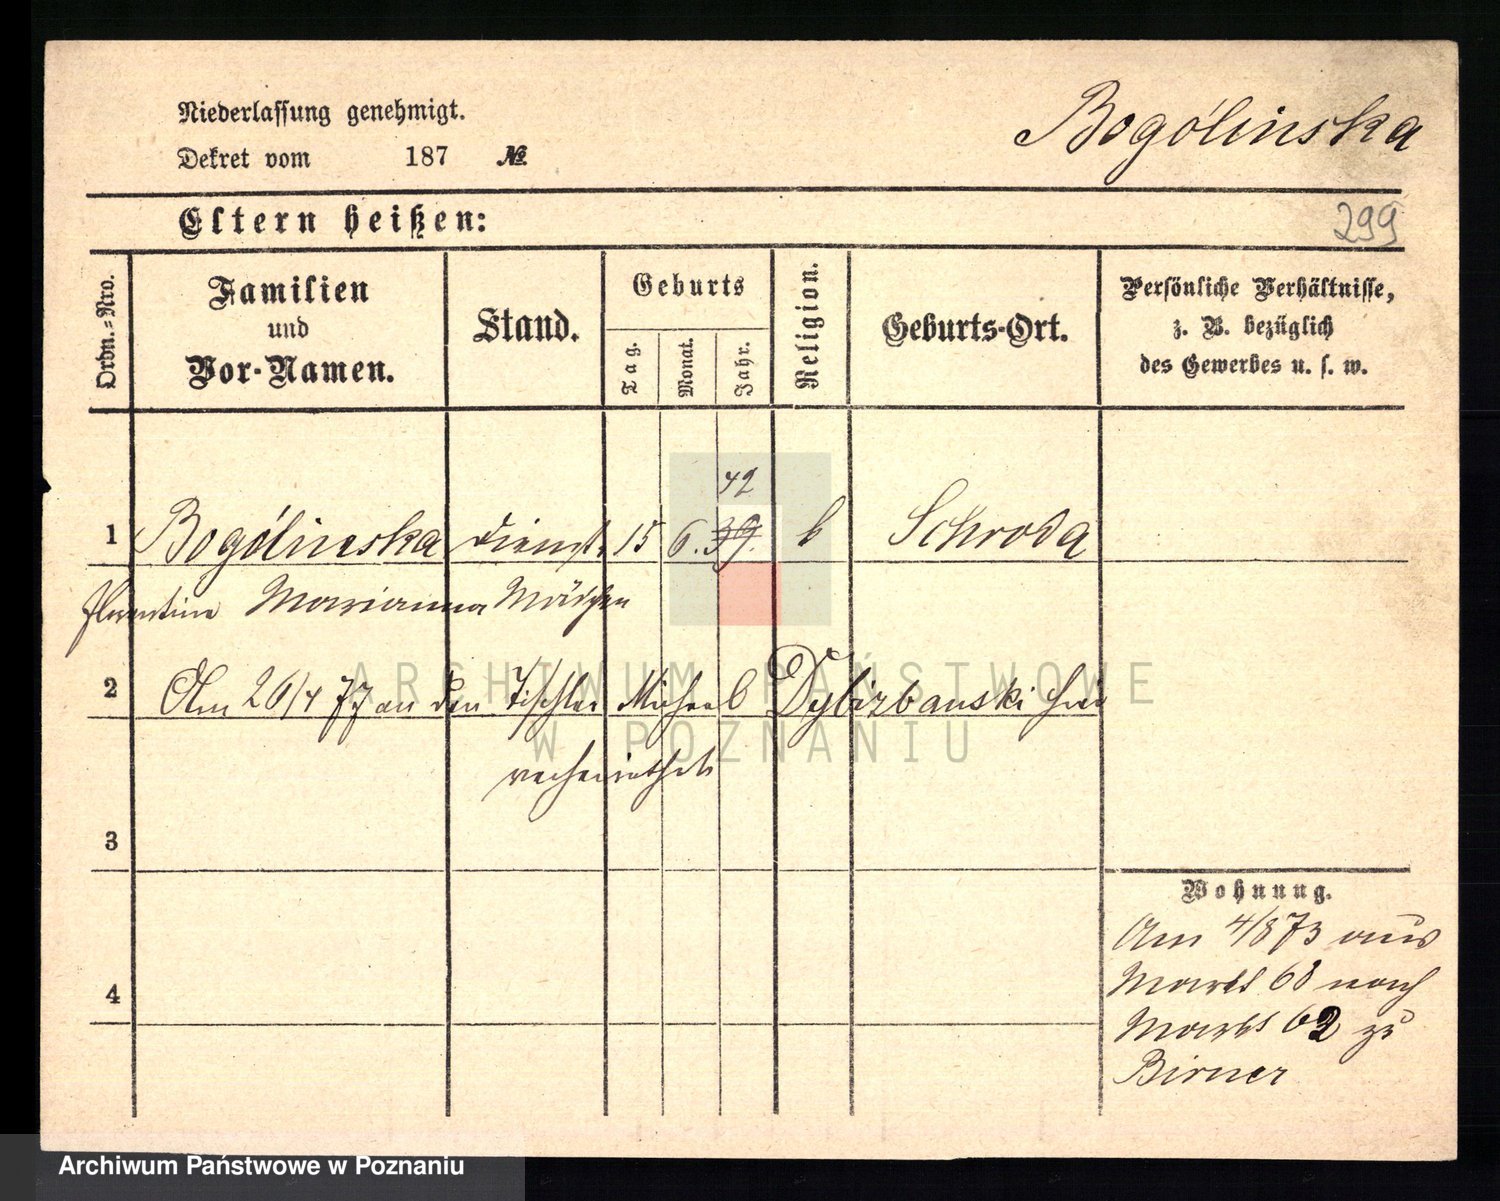 Niederlassung genehmigt.
Dekret vom 187 №
Bogólinska
Eltern heißen:
299
Ordn.-Nro.
Familien
und
Vor-Namen.
Stand.
Geburts
Tag.
Monat.
Jahr.
Religion.
Geburts-Ort.
Persönliche Verhältnisse,
z. B. bezüglich
des Gewerbes u. s. w.
42
1 Bogólinska Dienst 15 6. 39. k Schroda
Florentine Marianna Mädchen
2 Am 26/4 77 an den Tischler Michael Dybizbanski hier
verheirathet
3
Wohnung.
Am 4/8 73 aus
Markt 68 nach
4
Markt 62 zu
Birner
ARCHIWUM PAŃSTWOWE
W POZNANIU
Archiwum Państwowe w Poznaniu